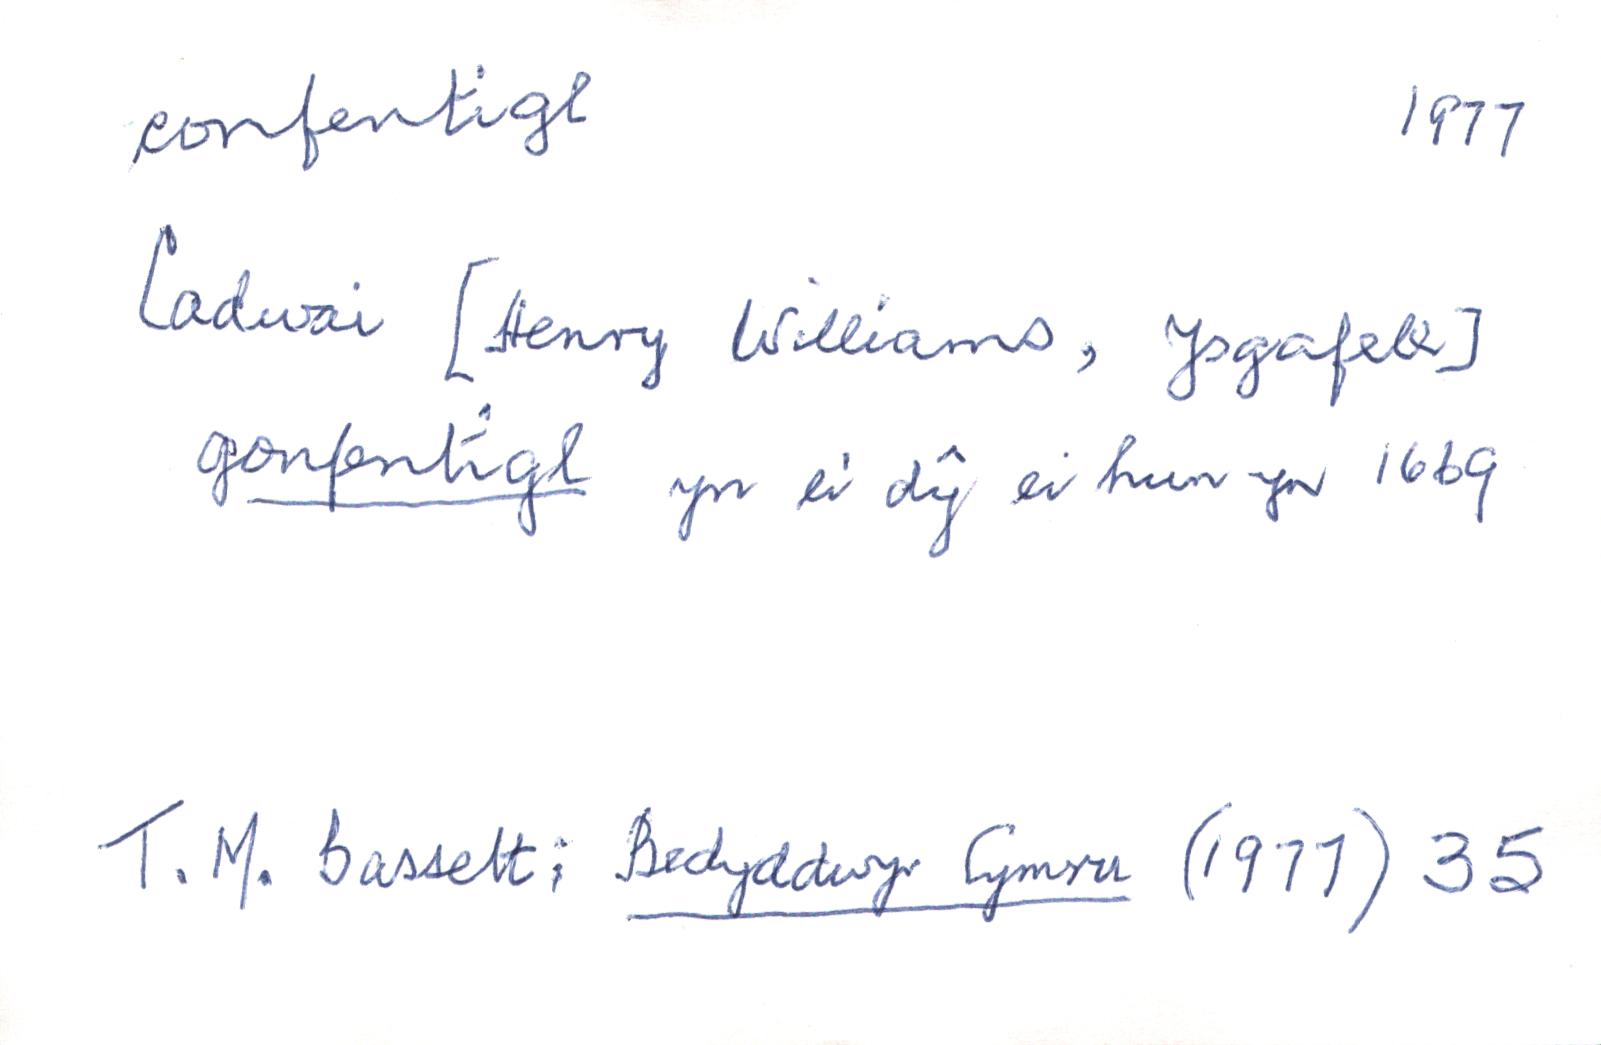 confentigl 1977
Cadwai [Henry Williams, Ysgafell]
gonfentigl yn ei dŷ ei hun yn 1669
T. M. Bassett; Bedyddwyr Cymru (1977) 35